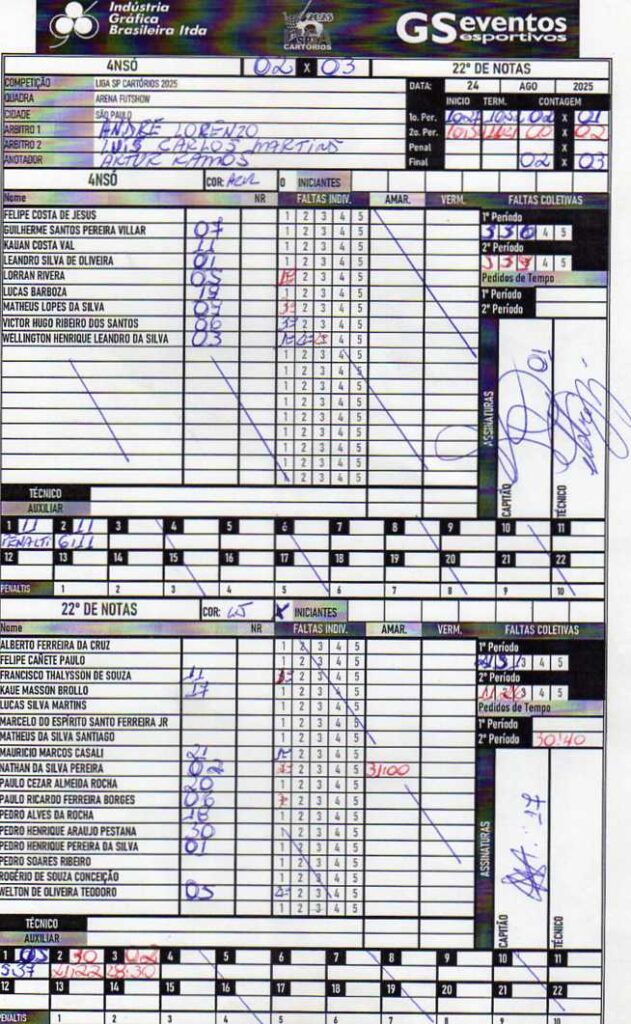 Indústria
Gráfica
Brasileira ltda
2025
CARTÓRIOS
GSeventos
esportivos
4NSÓ 02 X 03 22º DE NOTAS
COMPETIÇÃO LIGA SP CARTÓRIOS 2025 DATA: 24 AGO 2025
QUADRA ARENA FUTSHOW INICIO TERM. CONTAGEM
CIDADE SÃO PAULO 1o. Per. 02 X 01
ARBITRO 1 ANDRÉ LORENZO 2o. Per. 00 X 02
ARBITRO 2 LUIS CARLOS MARTINS Penal X
ANOTADOR ARTUR RAMOS Final 02 X 03
4NSÓ COR: AZUL 0 INICIANTES
Nome NR FALTAS INDIV. AMAR. VERM. FALTAS COLETIVAS
FELIPE COSTA DE JESUS 1 2 3 4 5 1º Período
GUILHERME SANTOS PEREIRA VILLAR 07 1 2 3 4 5 4 5
KAUAN COSTA VAL 11 1 2 3 4 5 2º Período
LEANDRO SILVA DE OLIVEIRA 01 1 2 3 4 5 4 5
LORRAN RIVERA 2 3 4 5 Pedidos de Tempo
LUCAS BARBOZA 1 2 3 4 5 1º Período
MATHEUS LOPES DA SILVA 2 3 4 5 2º Período
VICTOR HUGO RIBEIRO DOS SANTOS 06 2 3 4 5
WELLINGTON HENRIQUE LEANDRO DA SILVA 03 4 5
1 2 3 4 5
1 2 3 4 5
1 2 3 4 5
1 2 3 4 5
1 2 3 4 5
1 2 3 4 5
1 2 3 4 5
1 2 3 4 5
1 2 3 4 5
ASSINATURAS
CAPITÃO 01
TÉCNICO
TÉCNICO
AUXILIAR
1 11 2 11 3 4 5 6 7 8 9 10 11
PENALTI 6:11
12 13 14 15 16 17 18 19 20 21 22
PENALTIS 1 2 3 4 5 6 7 8 9 10
22º DE NOTAS COR: X INICIANTES
Nome NR FALTAS INDIV. AMAR. VERM. FALTAS COLETIVAS
ALBERTO FERREIRA DA CRUZ 1 2 3 4 5 1º Período
FELIPE CAÑETE PAULO 1 2 3 4 5 3 4 5
FRANCISCO THALYSSON DE SOUZA 11 2 3 4 5 2º Período
KAUE MASSON BROLLO 17 1 2 3 4 5 3 4 5
LUCAS SILVA MARTINS 1 2 3 4 5 Pedidos de Tempo
MARCELO DO ESPÍRITO SANTO FERREIRA JR 1 2 3 4 5 1º Período
MATHEUS DA SILVA SANTIAGO 1 2 3 4 5 2º Período 30:40
MAURICIO MARCOS CASALI 21 2 3 4 5
NATHAN DA SILVA PEREIRA 02 2 3 4 5
PAULO CEZAR ALMEIDA ROCHA 20 1 2 3 4 5
PAULO RICARDO FERREIRA BORGES 06 2 3 4 5
PEDRO ALVES DA ROCHA 18 1 2 3 4 5
PEDRO HENRIQUE ARAUJO PESTANA 30 1 2 3 4 5
PEDRO HENRIQUE PEREIRA DA SILVA 01 1 2 3 4 5
PEDRO SOARES RIBEIRO 1 2 3 4 5
ROGÉRIO DE SOUZA CONCEIÇÃO 1 2 3 4 5
WELTON DE OLIVEIRA TEODORO 05 2 3 4 5
1 2 3 4 5
ASSINATURAS
CAPITÃO 17
TÉCNICO
TÉCNICO
AUXILIAR
1 05 2 30 3 02 4 5 6 7 8 9 10 11
5:37 21:22 28:30
12 13 14 15 16 17 18 19 20 21 22
PENALTIS 1 2 3 4 5 6 7 8 9 10